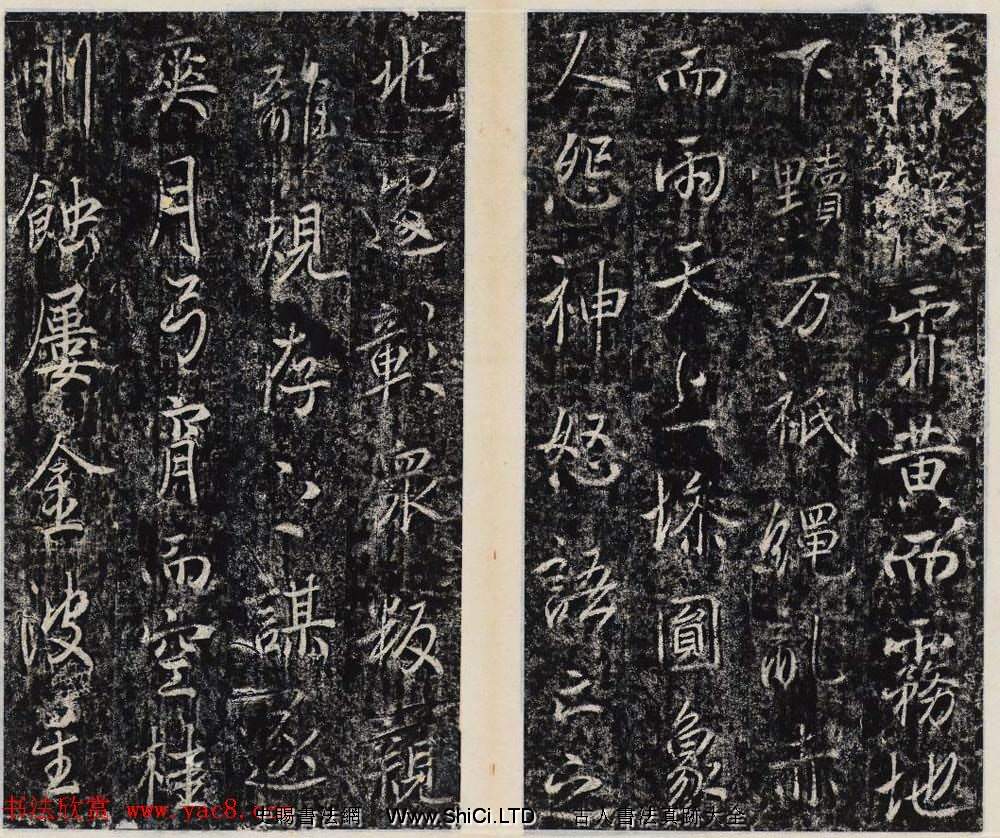 霏黄而霧地
下黷方祇繩亂赤
而雨天上墋圓象
人怨神怒語亡之
兆彰眾叛親
離規存之謀遂
爽月弓宵而空桂
蝕屢金波生
书法欣赏 www.yac8.com
史賜書法網 www.ShiCi.LTD 古人書法真跡大全